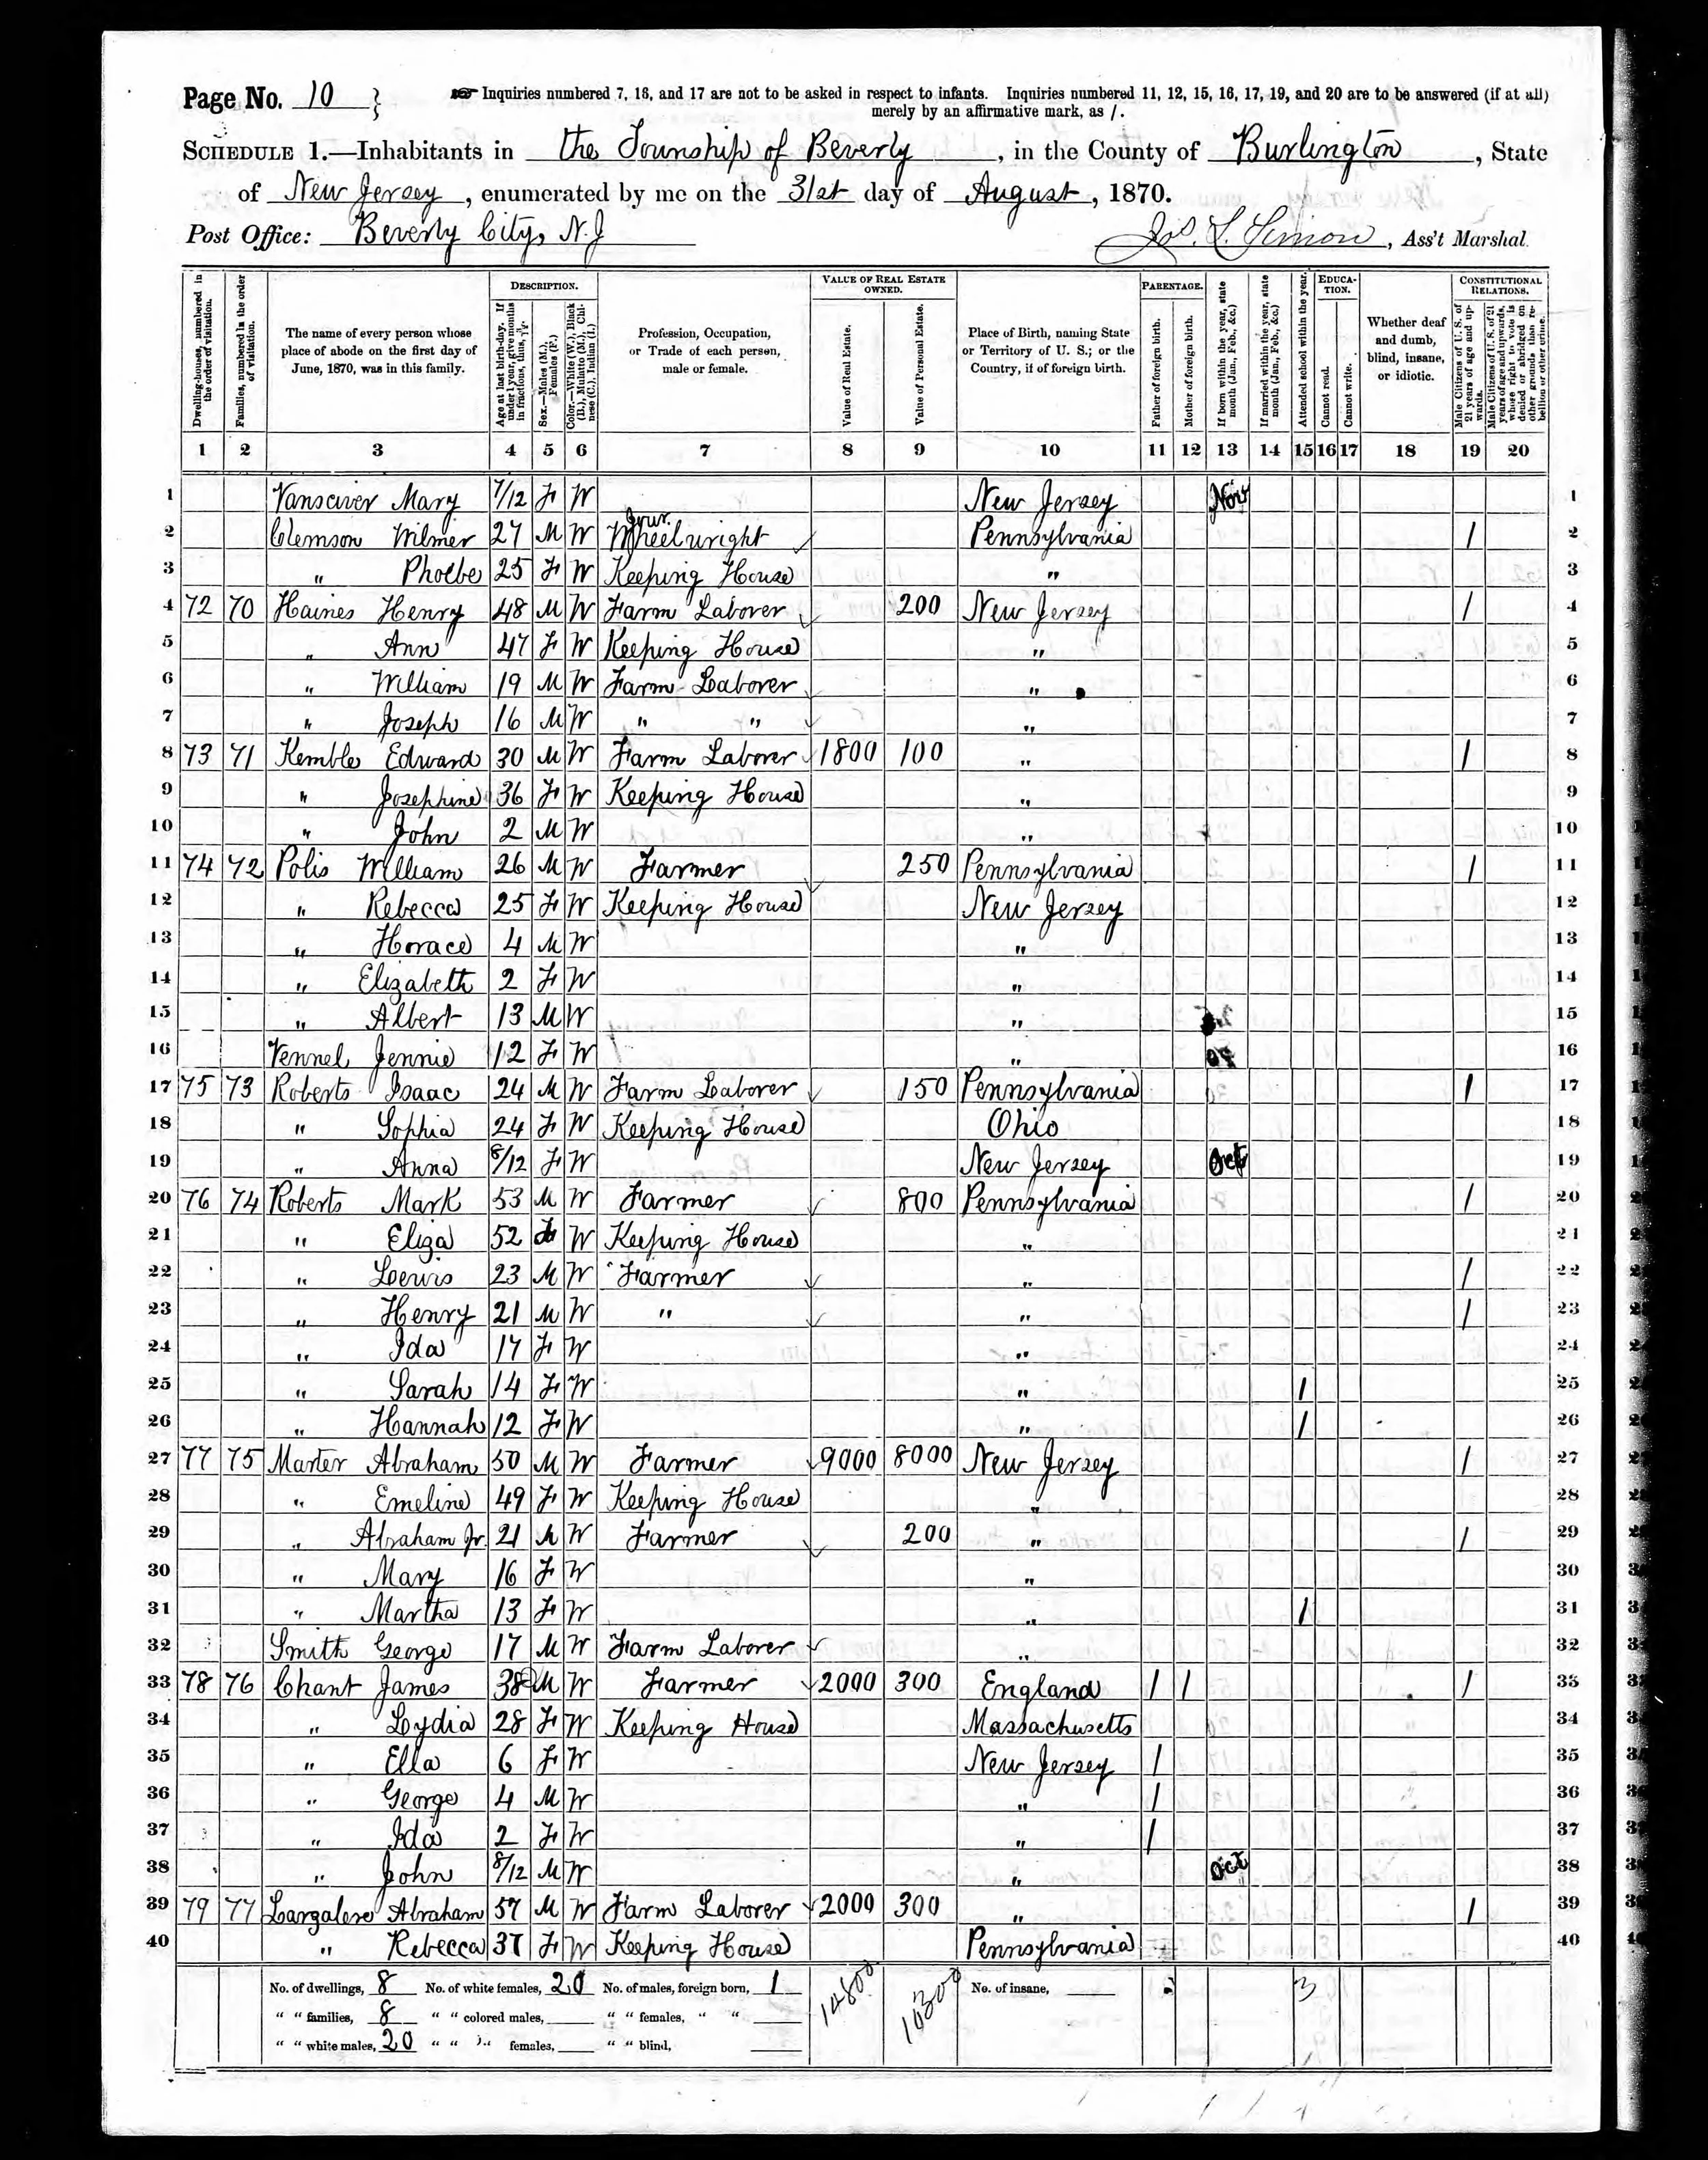 Page No. 10 } ☞ Inquiries numbered 7, 16, and 17 are not to be asked in respect to infants. Inquiries numbered 11, 12, 15, 16, 17, 19, and 20 are to be answered (if at all)
merely by an affirmative mark, as /.
SCHEDULE 1.—Inhabitants in the Township of Beverly, in the County of Burlington, State
of New Jersey, enumerated by me on the 31st day of August, 1870.
Post Office: Beverly City, N.J Jos. L. Simon, Ass't Marshal.
Dwelling-houses, numbered in the order of visitation.
Families, numbered in the order of visitation.
The name of every person whose place of abode on the first day of June, 1870, was in this family.
DESCRIPTION.
Age at last birth-day. If under 1 year, give months in fractions, thus, 3/12.
Sex.—Males (M.), Females (F.)
Color.—White (W.), Black (B.), Mulatto (M.), Chinese (C.), Indian (I.)
Profession, Occupation, or Trade of each person, male or female.
VALUE OF REAL ESTATE OWNED.
Value of Real Estate.
Value of Personal Estate.
Place of Birth, naming State or Territory of U. S.; or the Country, if of foreign birth.
PARENTAGE.
Father of foreign birth.
Mother of foreign birth.
If born within the year, state month (Jan., Feb., &c.)
If married within the year, state month (Jan., Feb., &c.)
Attended school within the year.
EDUCATION.
Cannot read.
Cannot write.
Whether deaf and dumb, blind, insane, or idiotic.
CONSTITUTIONAL RELATIONS.
Male Citizens of U. S. of 21 years of age and upwards.
Male Citizens of U. S. of 21 years of age and upwards, whose right to vote is denied or abridged on other grounds than rebellion or other crime.
1 2 3 4 5 6 7 8 9 10 11 12 13 14 15 16 17 18 19 20
1 Vansciver Mary 7/12 F W New Jersey Nov 1
2 Clemson Wilmer 27 M W Jour. Wheelwright Pennsylvania / 2
3 " Phoebe 25 F W Keeping House " 3
4 72 70 Haines Henry 48 M W Farm Laborer 200 New Jersey / 4
5 " Ann 47 F W Keeping House " 5
6 " William 19 M W Farm Laborer " 6
7 " Joseph 16 M W " " " 7
8 73 71 Kemble Edward 30 M W Farm Laborer 1800 100 " / 8
9 " Josephine 36 F W Keeping House " 9
10 " John 2 M W " 10
11 74 72 Polis William 26 M W Farmer 250 Pennsylvania / 11
12 " Rebecca 25 F W Keeping House New Jersey 12
13 " Horace 4 M W " 13
14 " Elizabeth 2 F W " 14
15 " Albert 13 M W " 15
16 Vennel Jennie 12 F W " 16
17 75 73 Roberts Isaac 24 M W Farm Laborer 150 Pennsylvania / 17
18 " Sophia 24 F W Keeping House Ohio 18
19 " Anna 8/12 F W New Jersey Oct 19
20 76 74 Roberts Mark 53 M W Farmer 800 Pennsylvania / 20
21 " Eliza 52 F W Keeping House " 21
22 " Lewis 23 M W Farmer " / 22
23 " Henry 21 M W " " / 23
24 " Ida 17 F W " 24
25 " Sarah 14 F W " / 25
26 " Hannah 12 F W " / 26
27 77 75 Marter Abraham 50 M W Farmer 9000 8000 New Jersey / 27
28 " Emeline 49 F W Keeping House " 28
29 " Abraham Jr. 21 M W Farmer 200 " / 29
30 " Mary 16 F W " 30
31 " Martha 13 F W " / 31
32 Smith George 17 M W Farm Laborer " 32
33 78 76 Chant James 38 M W Farmer 2000 300 England / / / 33
34 " Lydia 28 F W Keeping House Massachusetts 34
35 " Ella 6 F W New Jersey / 35
36 " George 4 M W " / 36
37 " Ida 2 F W " / 37
38 " John 8/12 M W " Oct 38
39 79 77 Largalere Abraham 57 M W Farm Laborer 2000 300 " / 39
40 " Rebecca 37 F W Keeping House Pennsylvania 40
No. of dwellings, 8 No. of white females, 20 No. of males, foreign born, 1 14800 10300 No. of insane, 3
" " families, 8 " " colored males, " " females, " "
" " white males, 20 " " " females, " " blind,